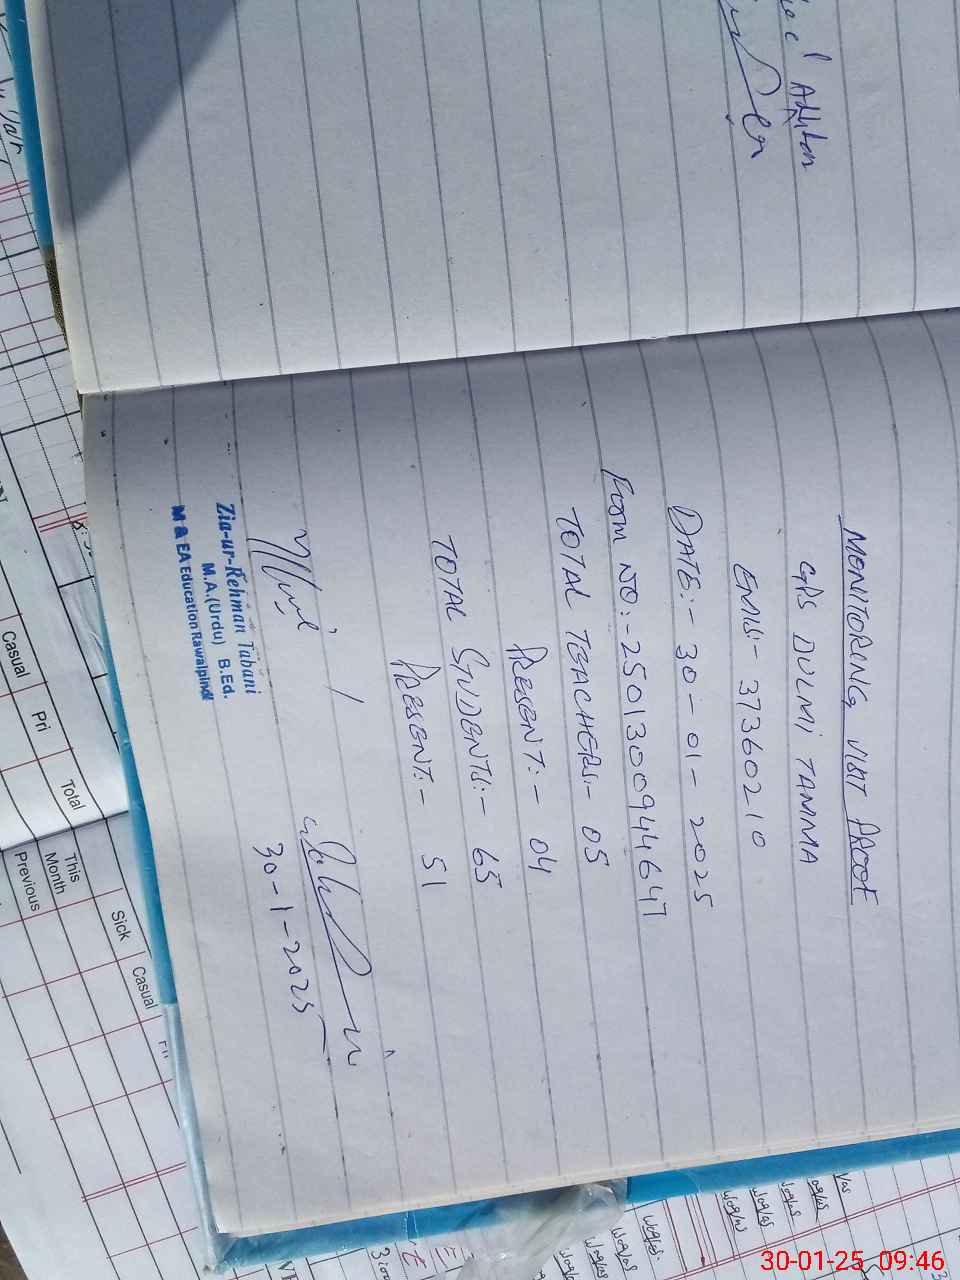 MONITORING VISIT PROOF
GPS DULMI TAMMA
EMIS:- 37360210
DATE:- 30-01-2025
FORM NO:- 2501300944647
TOTAL TEACHERS:- 05
PRESENT:- 04
TOTAL STUDENTS:- 65
PRESENT:- 51
30-1-2025
Zia-ur-Rehman Tabani
M.A.(Urdu) B.Ed.
M & EA Education Rawalpindi
Casual Pri Total
This Month
Previous
Sick Casual
30-01-25 09:46